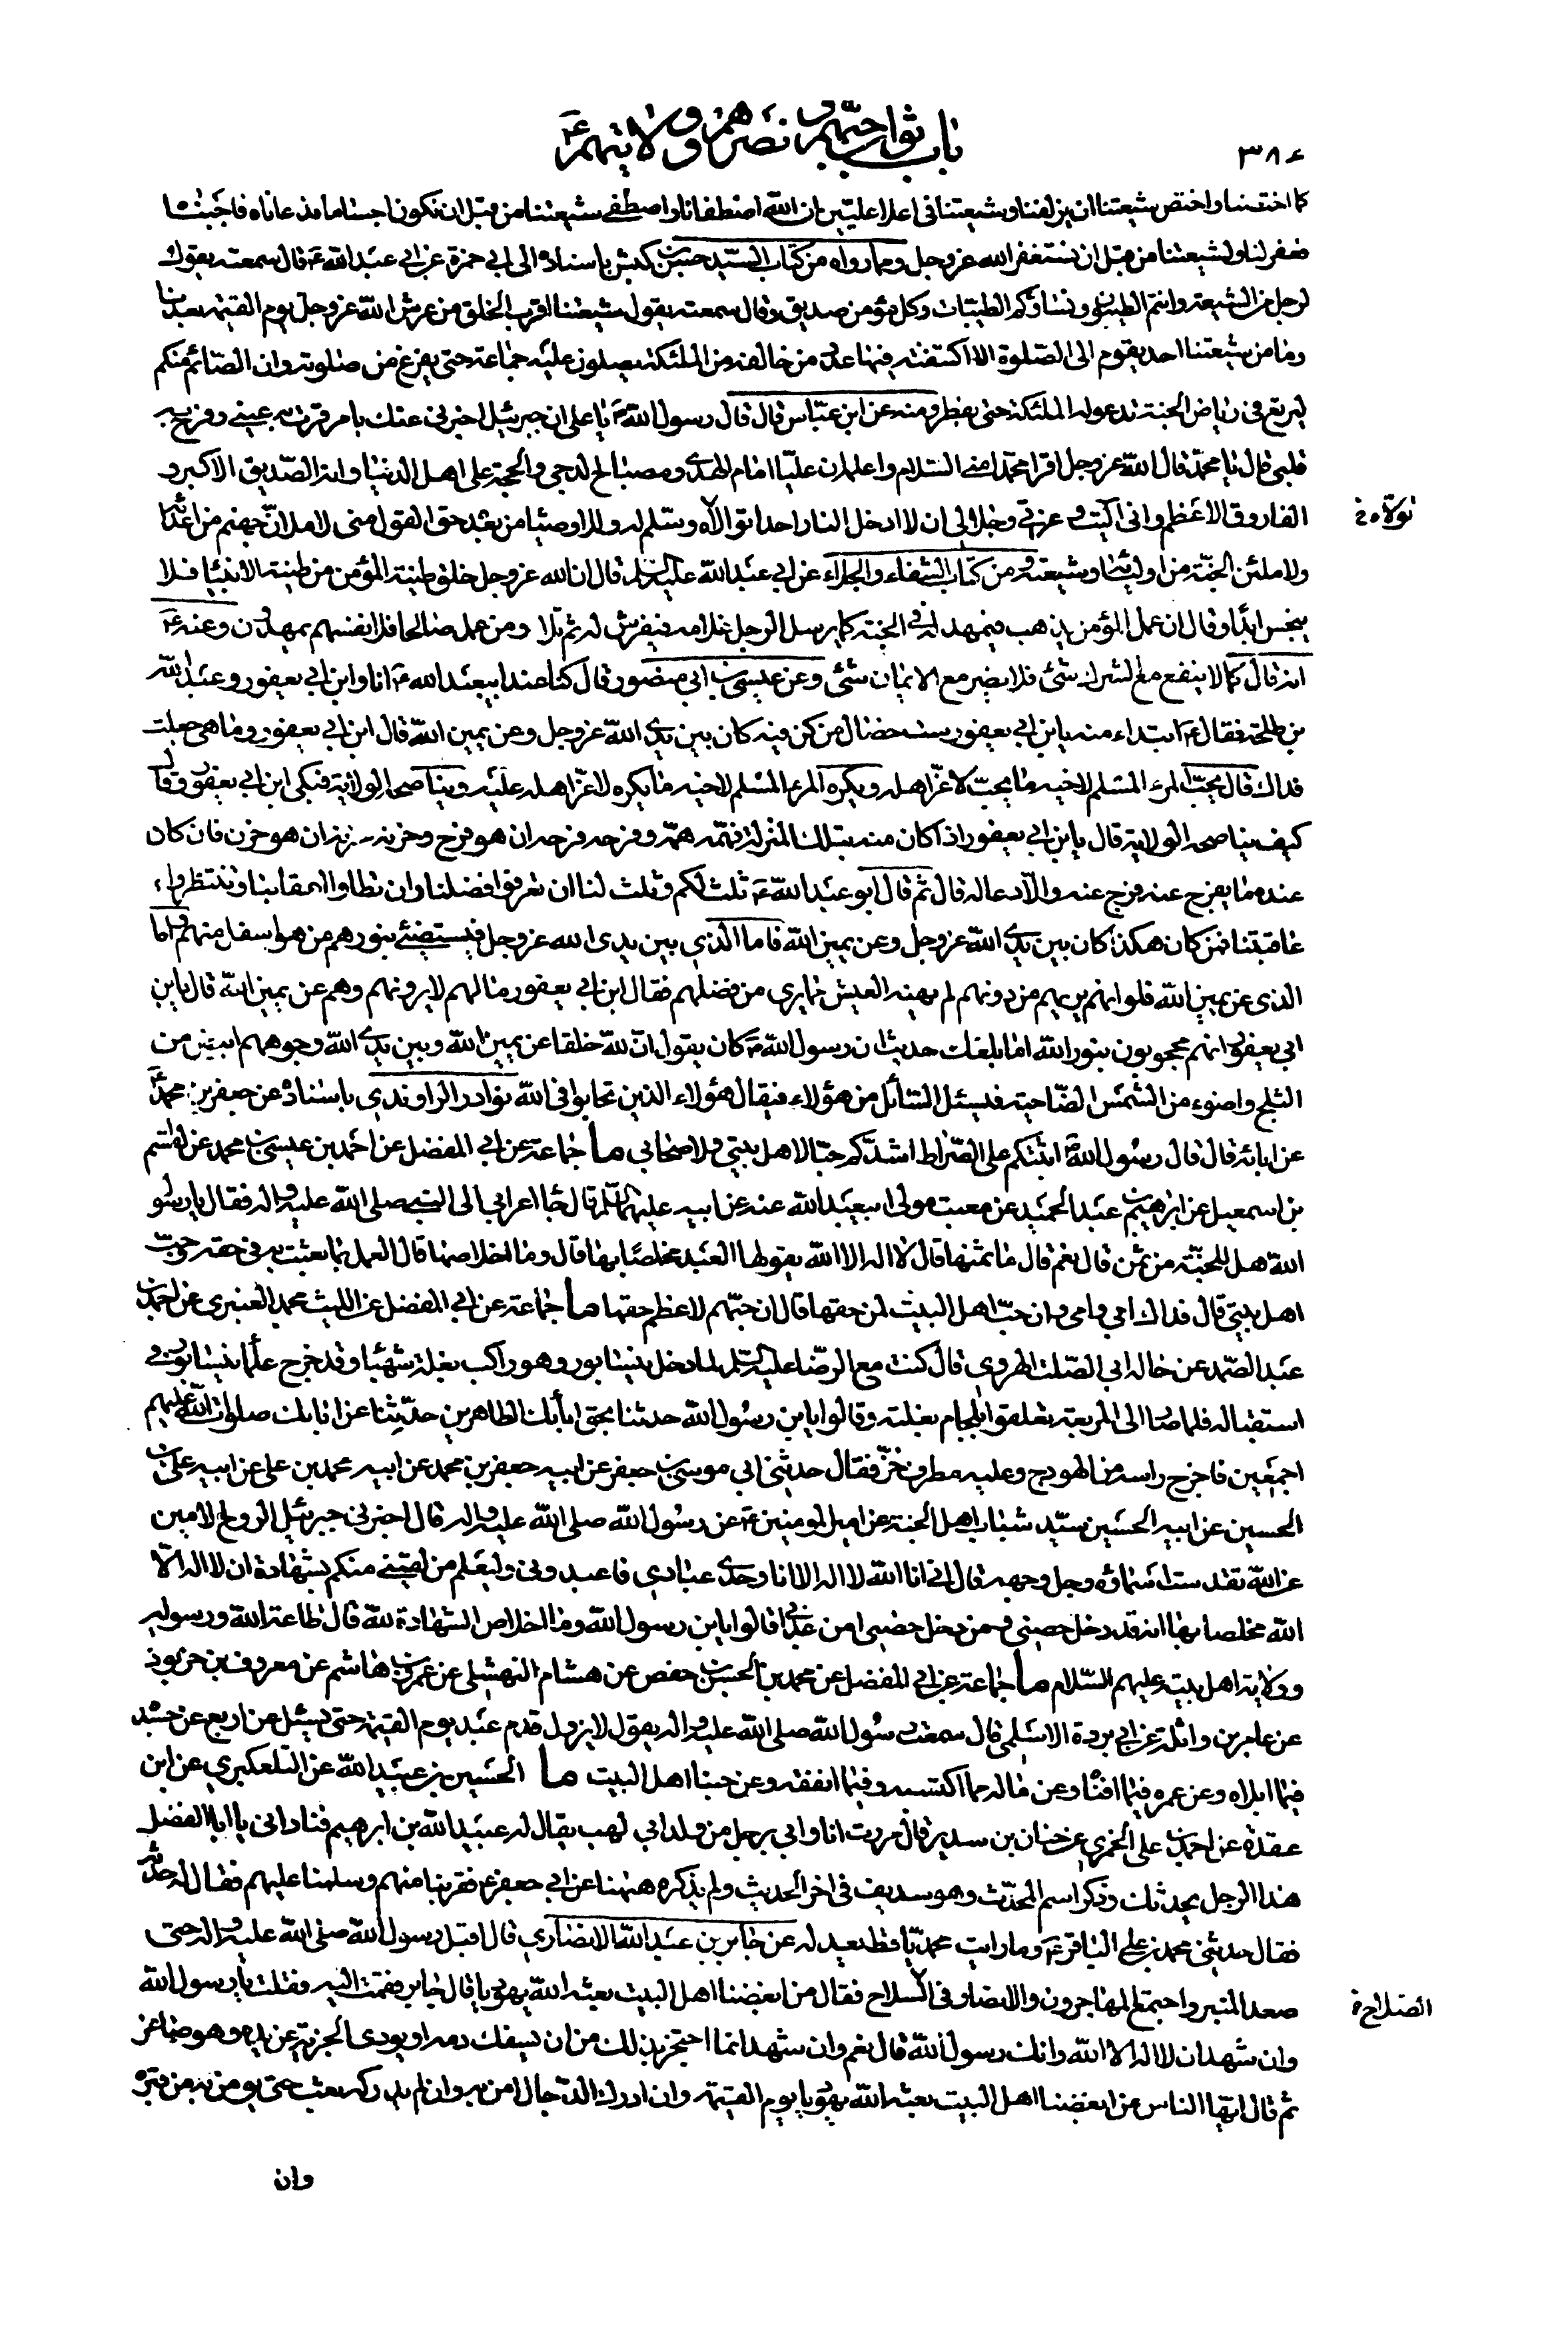 ٣٨٤
باب ثواب حبهم ونصرهم وولايتهم ع
كما اختصنا واختص شيعتنا ان يزلفنا وشيعتنا فى اعلا عليين ان الله اصطفانا واصطفى شيعتنا من قبل ان نكون اجساما فدعانا فاجبنا
فغفر لنا ولشيعتنا من قبل ان نستغفر الله عز وجل ومما رواه من كتاب السيد حسن كبش باسناده الى ابي حمزة عن ابي عبد الله ع قال سمعته يقول
لرجل من الشيعة وانتم الطيبون ونساؤكم الطيبات وكل مؤمن صديق وقال سمعته يقول شيعتنا اقرب الخلق من عرش الله عز وجل يوم القيمة بعدنا
وما من شيعتنا احد يقوم الى الصلوة الا اكتنفته فيها عدد من خالفه من الملئكة يصلون عليه جماعة حتى يفرغ من صلوته وان الصائم منكم
ليرتع فى رياض الجنة تدعو له الملئكة حتى يفطر ومنه عن ابن عباس قال قال رسول الله ص يا على ان جبرئيل اخبرنى عنك بامر قرت به عينى وفرح به
قلبى قال يا محمد قال الله عز وجل اقرا محمدا منى السلام واعلمه ان عليا امام الهدى ومصباح الدجى والحجة على اهل الدنيا وانه الصديق الاكبر و
الفاروق الاعظم وانى آليت و عزتى وجلالى ان لا ادخل النار احدا توالاه وسلم له وللاوصيا من بعده حق القول منى لاملان جهنم من اعدائه
تولاه خ
ولاملئن الجنة من اوليائه وشيعته ومن كتاب الشفاء والجلاء عن ابي عبد الله عليه السلم قال ان الله عز وجل خلق طينة المؤمن من طينة الانبيا فلا
ينجس ابدا وقال ان عمل المؤمن يذهب فيمهد له فى الجنة كما يرسل الرجل غلامه فيفرش له ثم تلا ومن عمل صالحا فلانفسهم يمهدون وعنه ع
انه قال كما لا ينفع مع الشرك شئ فلا يضر مع الايمان شئ وعن عيسى بن ابى منصور قال كنا عند ابيعبد الله ع انا وابن ابي يعفور وعبد الله
بن طلحة فقال ع ابتداء منه يابن ابي يعفور ست خصال من كن فيه كان بين يدى الله عز وجل وعن يمين الله قال ابن ابي يعفور وما هى جعلت
فداك قال يحب المرء المسلم لاخيه ما يحب لاعز اهله ويكره المرء المسلم لاخيه ما يكره لاعز اهله عليه ويناصحه الولاية فبكى ابن ابي يعفور وقال
كيف يناصحه الولاية قال يابن ابي يعفور اذا كان منه بتلك المنزلة فهمه همه وفرحه فرحه ان هو فرح وحزنه حزنه ان هو حزن فان كان
عنده ما يفرج عنه فرج عنه والا دعا له قال ثم قال ابو عبد الله ع ثلث لكم وثلث لنا ان تعرفوا فضلنا وان تطاوا اعقابنا وتنتظروا
عاقبتنا فمن كان هكذا كان بين يدى الله عز وجل وعن يمين الله فاما الذى بين يدى الله عز وجل فيستضئ بنورهم من هو اسفل منهم واما
الذى عن يمين الله فلو انهم يريهم من دونهم لم يهنه العيش مما يرى من فضلهم فقال ابن ابي يعفور ما لهم لا يرونهم وهم عن يمين الله قال يابن
ابي يعفور انهم محجوبون بنور الله اما بلغك حديث ان رسول الله ص كان يقول ان لله خلقا عن يمين الله وبين يدى الله وجوههم ابيض من
الثلج واضوء من الشمس الضاحية فيسئل السائل من هؤلاء فيقال هؤلاء الذين تحابوا فى الله نوادر الراوندى باسناده عن جعفر بن محمد ع
عن ابائه قال قال رسول الله ص اثبتكم على الصراط اشدكم حبا لاهل بيتى ولاصحابى ما جماعة عن ابي المفضل عن احمد بن عيسى بن محمد عن القسم
بن اسمعيل عن ابرهيم بن عبد الحميد عن معتب مولى ابيعبد الله عنه عن ابيه عليهما السلم قال جا اعرابي الى النبى صلى الله عليه واله فقال يا رسو
الله هل للجنة من ثمن قال نعم قال ما ثمنها قال لا اله الا الله يقولها العبد مخلصا بها قال وما اخلاصها قال العمل بما بعثت به فى حقه وحب
اهل بيتى قال فداك ابي وامى وان حب اهل البيت لمن حقها قال ان حبهم لاعظم حقها ما جماعة عن ابي المفضل عن الليث محمد العنبرى عن احمد بن
عبد الصمد عن خاله ابى الصلت الهروى قال كنت مع الرضا عليه السلم لما دخل نيسابور وهو راكب بغلة شهبا وقد خرج علما نيسابور فى
استقباله فلما صار الى المربعة تعلقوا بلجام بغلته وقالوا يابن رسول الله حدثنا بحق ابائك الطاهرين حدثنا عن ابائك صلوات الله عليهم
اجمعين فاخرج راسه من الهودج وعليه مطرف خز فقال حدثنى ابي موسى بن جعفر عن ابيه جعفر بن محمد عن ابيه محمد بن على عن ابيه على بن
الحسين عن ابيه الحسين سيد شباب اهل الجنة عن امير المومنين ع عن رسول الله صلى الله عليه واله قال اخبرنى جبرئيل الروح الامين
عن الله تقدست اسماؤه وجل وجهه قال انى انا الله لا اله الا انا وحدى عبادى فاعبدونى وليعلم من لقينى منكم بشهادة ان لا اله الا
الله مخلصا بها انه قد دخل حصنى ومن دخل حصنى امن عذابى قالوا يابن رسول الله وما اخلاص الشهادة لله قال طاعة الله ورسوله
وولاية اهل بيته عليهم السلام ما جماعة عن ابي المفضل عن محمد بن الحسين بن حفص عن هشام النهشلى عن عمر بن هاشم عن معروف بن خربوذ
عن عامر بن واثلة عن ابي بردة الاسلمى قال سمعت رسول الله صلى الله عليه واله يقول لا يزول قدم عبد يوم القيمة حتى يسئل عن اربع عن جسده
فيما ابلاه وعن عمره فيما افناه وعن ماله مما اكتسبه وفيما انفقه وعن حبنا اهل البيت ما الحسين بن عبيد الله عن التلعكبرى عن ابن
عقدة عن احمد بن على الخمرى عن حنان بن سدير قال مررت انا وابي برجل من ولد ابي لهب يقال له عبيد الله بن ابرهيم فنادانى يا ابا الفضل
هذا الرجل يحدثك وذكر اسم المحدث وهو سديف فى اخر الحديث ولم يذكره ههنا عن ابي جعفر ع فقربنا منهم وسلمنا عليهم فقال له حدثه
فقال حدثنى محمد بن على الباقر ع وما رايت محمديا قط يعدله عن جابر بن عبد الله الانصارى قال اقبل رسول الله صلى الله عليه واله حتى
صعد المنبر واجتمع المهاجرون والانصار فى السلاح فقال من ابغضنا اهل البيت بعثه الله يهوديا قال جابر فقمت اليه وفقلت يا رسول الله
الصلاح خ
وان شهد ان لا اله الا الله وانك رسول الله قال نعم وان شهد انما احتجز بذلك من ان يسفك دمه او يودى الجزية عن يد وهو صاغر
ثم قال ايها الناس من ابغضنا اهل البيت بعثه الله يهوديا يوم القيمة وان ادرك الدجال امن به وان لم يدركه بعث حتى يومن به من قبره
وان